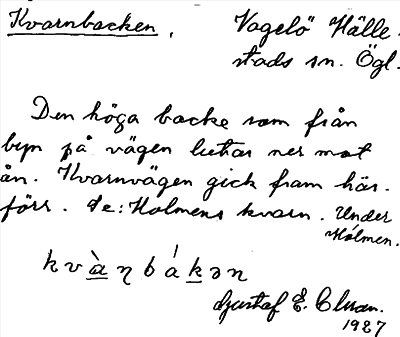 Kvarnbacken.
Vagelö Hälle-
stads sn. Ögl.
Den höga backe som från
byn på vägen lutar ner mot
ån. Kvarnvägen gick fram här
förr. Se: Holmens kvarn. Under
Holmen.
kvàɳbákən
Gustaf E.
1927